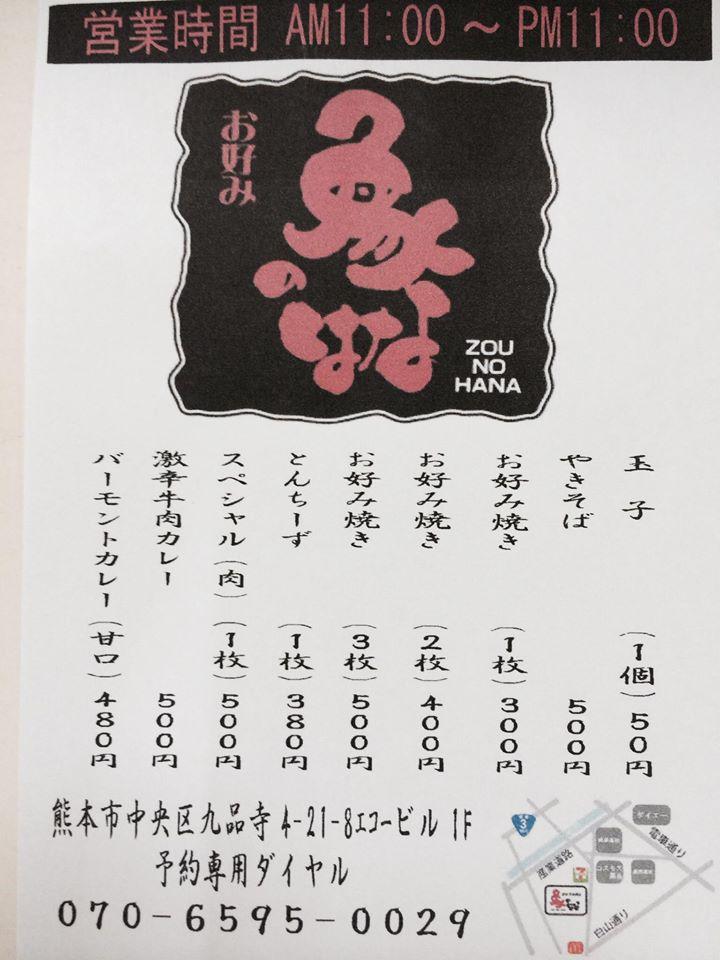 営業時間 AM11:00～PM11:00
お好み
象のはな
ZOU
NO
HANA
玉子 (1個) 50円
やきそば 500円
お好み焼き (1枚) 300円
お好み焼き (2枚) 400円
お好み焼き (3枚) 500円
とんちーず (1枚) 380円
スペシャル(肉) (1枚) 500円
激辛牛肉カレー 500円
バーモントカレー(甘口) 480円
熊本市中央区九品寺4-21-8エコービル 1F
予約専用ダイヤル
070-6595-0029
3
ダイエー
電車通り
産業道路
コスモス
7
白山通り